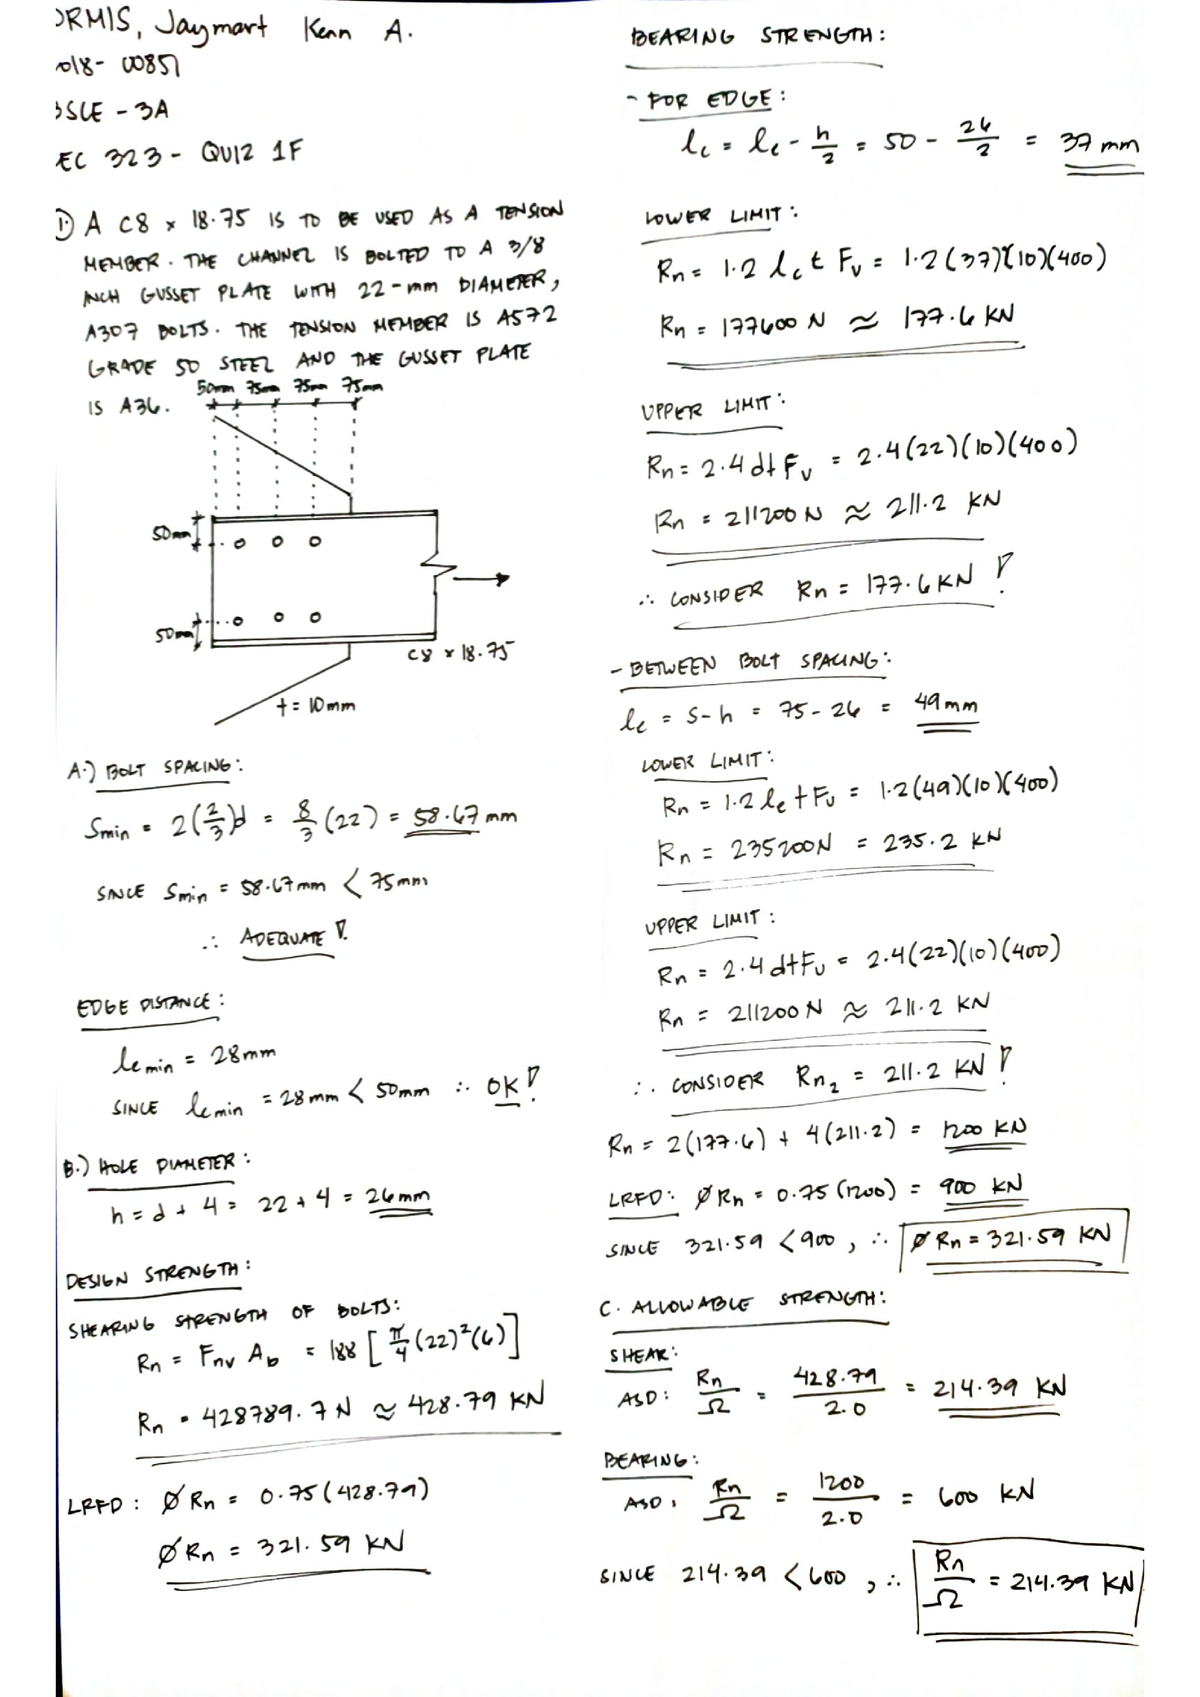 ORMIS, Jaymart Kenn A.
2018-00851
BSCE - 3A
EC 323 - QUIZ 1F
1.) A C8 x 18.75 IS TO BE USED AS A TENSION
MEMBER. THE CHANNEL IS BOLTED TO A 3/8
INCH GUSSET PLATE WITH 22-mm DIAMETER,
A307 BOLTS. THE TENSION MEMBER IS A572
GRADE 50 STEEL AND THE GUSSET PLATE
IS A36.
50mm 75mm 75mm 75mm
50mm
50mm
C8 x 18.75
t = 10mm
A.) BOLT SPACING:
Smin = 2(2/3)d = 8/3 (22) = 58.67 mm
SINCE Smin = 58.67mm < 75mm
∴ ADEQUATE!
EDGE DISTANCE:
le min = 28mm
SINCE le min = 28mm < 50mm ∴ OK!
B.) HOLE DIAMETER:
h = d + 4 = 22 + 4 = 26mm
DESIGN STRENGTH:
SHEARING STRENGTH OF BOLTS:
Rn = Fnv Ab = 188 [π/4 (22)²(6)]
Rn = 428789.7 N ≈ 428.79 KN
LRFD: ØRn = 0.75(428.79)
ØRn = 321.59 KN
BEARING STRENGTH:
- FOR EDGE:
lc = le - h/2 = 50 - 26/2 = 37 mm
LOWER LIMIT:
Rn = 1.2 lc t Fu = 1.2(37)(10)(400)
Rn = 177600 N ≈ 177.6 KN
UPPER LIMIT:
Rn = 2.4 dt Fu = 2.4(22)(10)(400)
Rn = 211200 N ≈ 211.2 KN
∴ CONSIDER Rn = 177.6 KN!
- BETWEEN BOLT SPACING:
lc = S-h = 75-26 = 49mm
LOWER LIMIT:
Rn = 1.2 lc t Fu = 1.2(49)(10)(400)
Rn = 235200N = 235.2 KN
UPPER LIMIT:
Rn = 2.4 dt Fu = 2.4(22)(10)(400)
Rn = 211200 N ≈ 211.2 KN
∴ CONSIDER Rn₂ = 211.2 KN!
Rn = 2(177.6) + 4(211.2) = 1200 KN
LRFD: ØRn = 0.75(1200) = 900 KN
SINCE 321.59 < 900, ∴ ØRn = 321.59 KN
C. ALLOWABLE STRENGTH:
SHEAR:
ASD: Rn/Ω = 428.79/2.0 = 214.39 KN
BEARING:
ASD: Rn/Ω = 1200/2.0 = 600 KN
SINCE 214.39 < 600, ∴ Rn/Ω = 214.39 KN